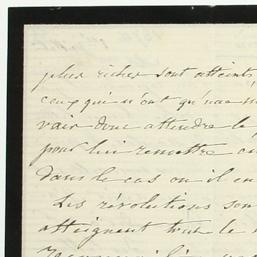 plus riches sont atteints
ceux qui n'ont qu'une
voir donc attendre le
pour lui remettre
Dans le cas où il en
Les révolutions son
atteignent tout le